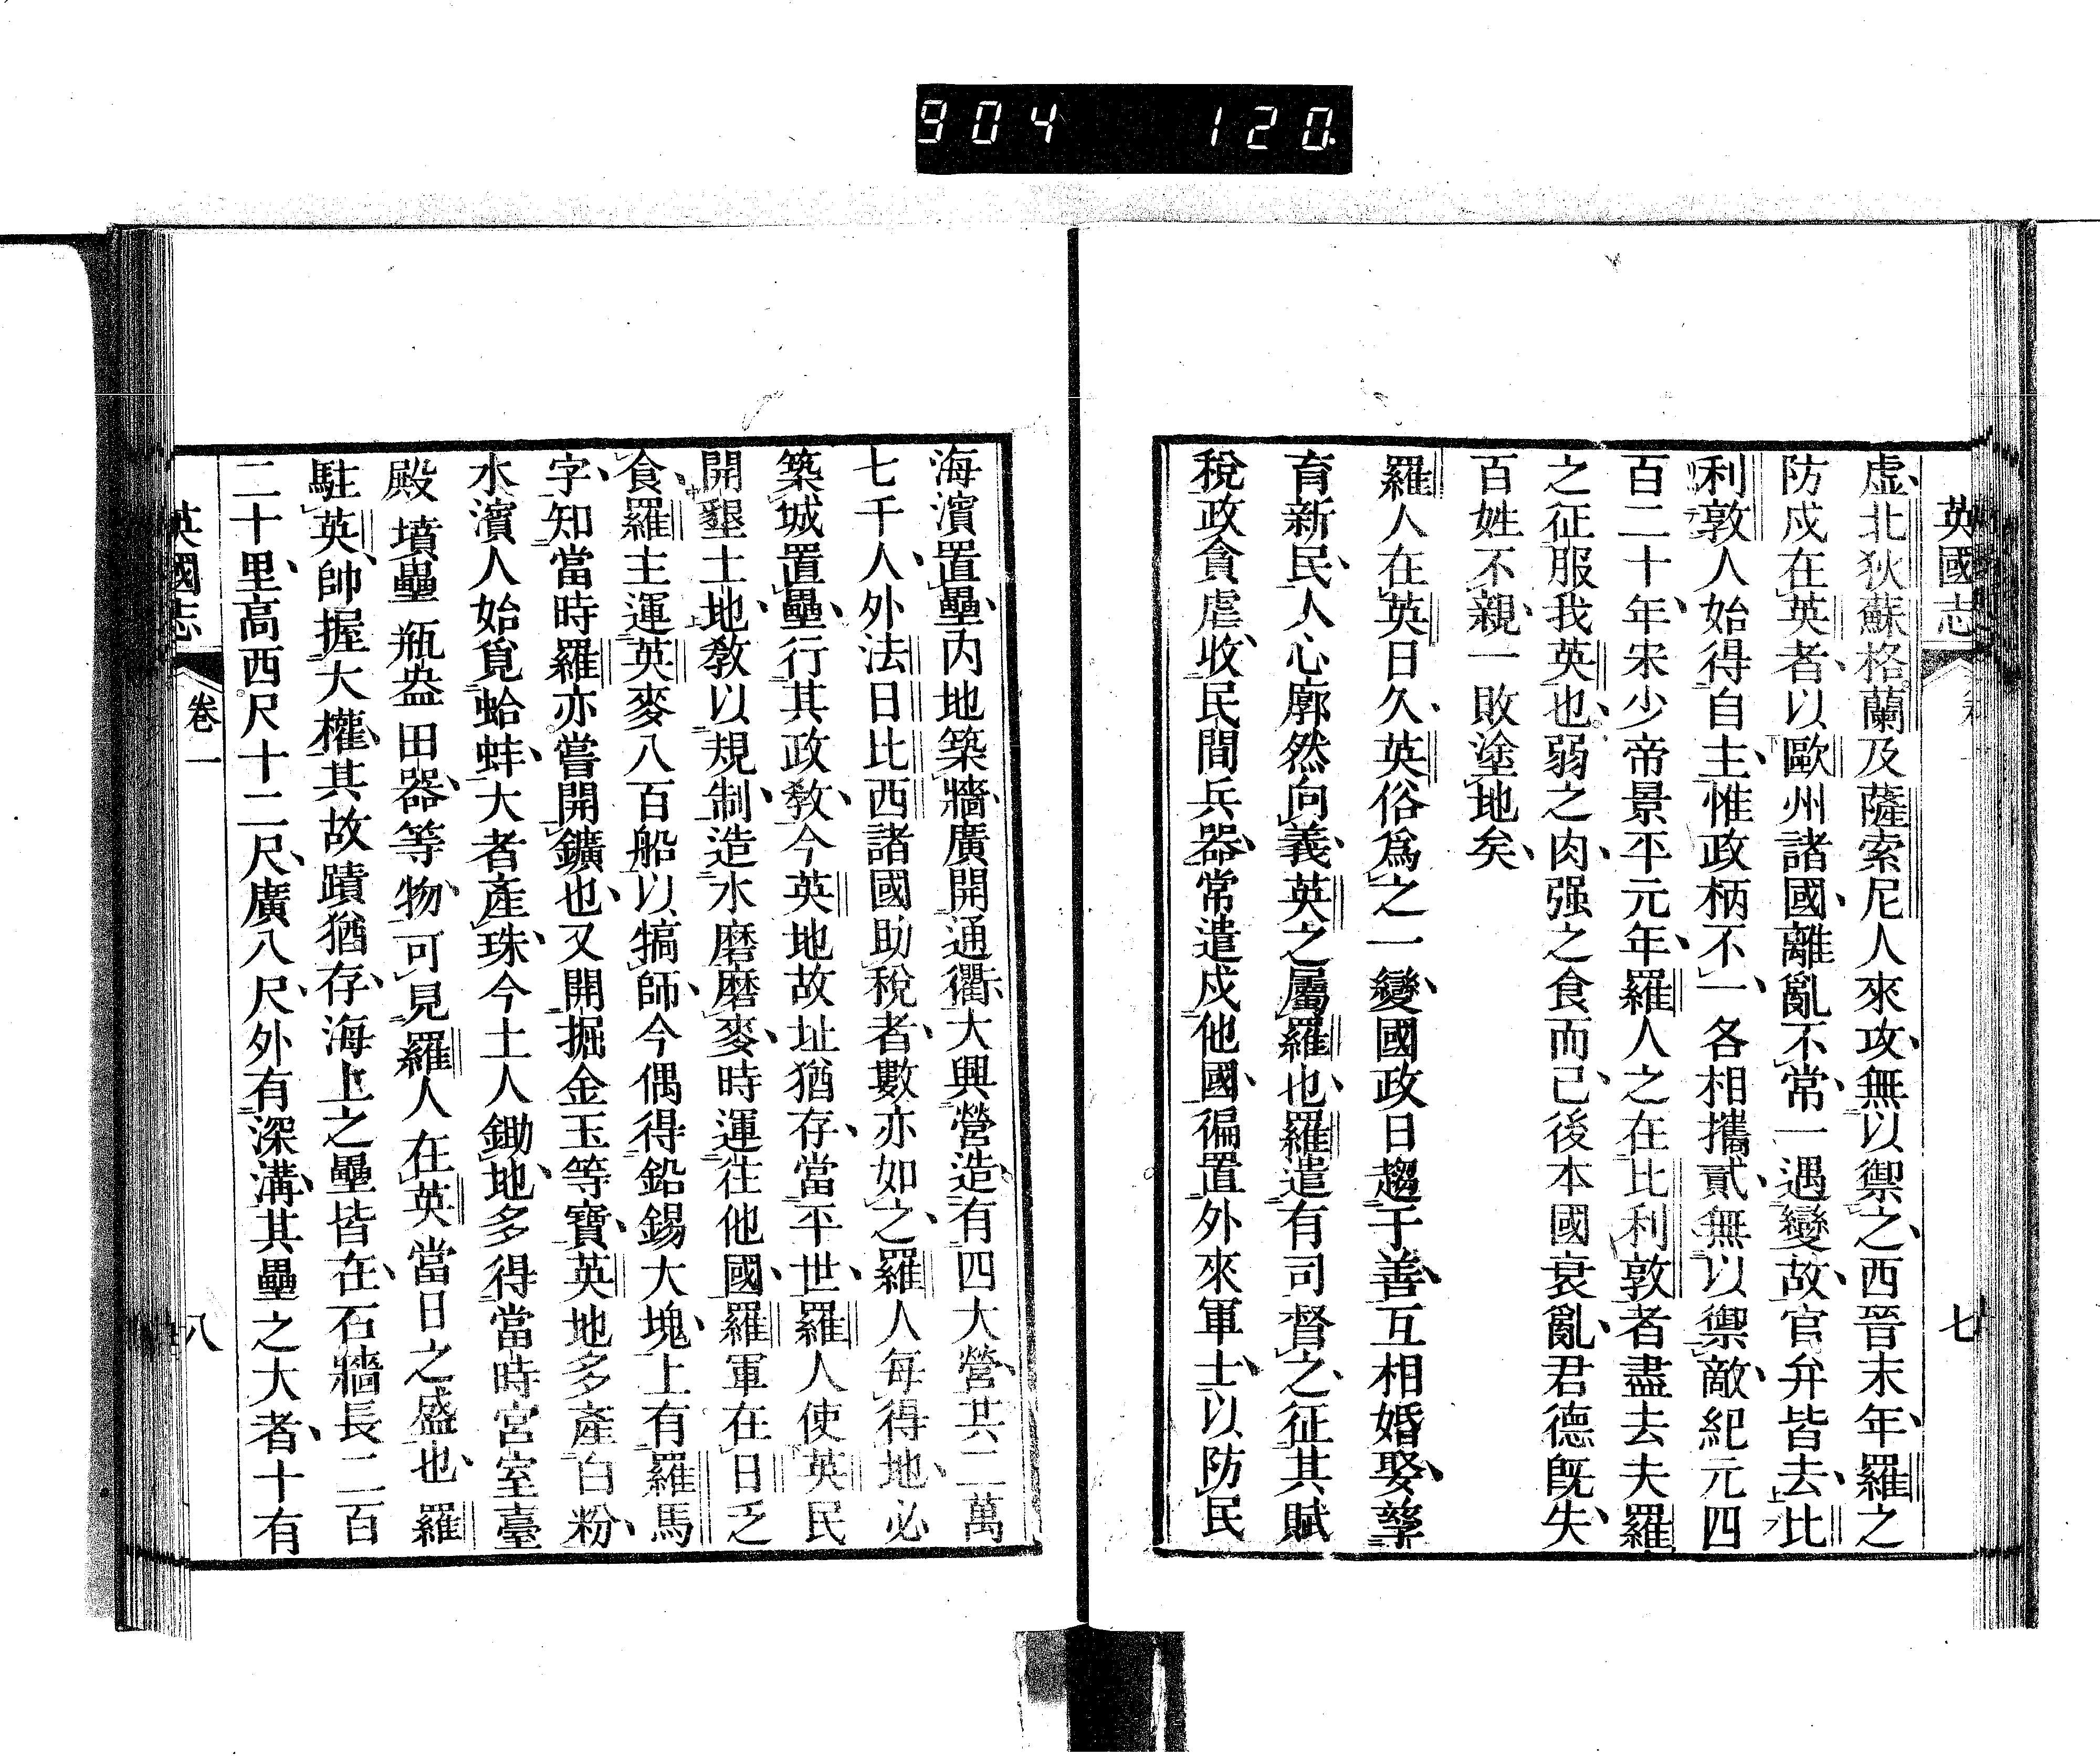 904 120
英國志
七
虛北狄蘇格蘭及薩索尼人來攻無以禦之西晉末年羅之
防戍在英者以歐州諸國離亂不常一遇變故官弁皆去比
利敦人始得自主惟政柄不一各相攜貳無以禦敵紀元四
百二十年宋少帝景平元年羅人之在比利敦者盡去夫羅
之征服我英也弱之肉强之食而己後本國衰亂君德旣失
百姓不親一敗塗地矣
羅人在英日久英俗爲之一變國政日趨于善互相婚娶孳
育新民人心廓然向義英之屬羅也羅遣有司督之征其賦
稅政貪虐收民間兵器常遣戍他國徧置外來軍士以防民
海濱置壘內地築牆廣開通衢大興營造有四大營共二萬
七千人外法日比西諸國助稅者數亦如之羅人每得地必
築城置壘行其政敎今英地故址猶存當平世羅人使英民
開墾土地敎以規制造水磨磨麥時運往他國羅軍在日乏
食羅主運英麥八百船以犒師今偶得鉛錫大塊上有羅馬
字知當時羅亦嘗開鑛也又開掘金玉等寶英地多產白粉
水濱人始覓蛤蚌大者產珠今土人鋤地多得當時宮室臺
殿墳壘瓶盎田器等物可見羅人在英當日之盛也羅
駐英帥握大權其故蹟猶存海上之壘皆在石牆長二百
二十里高西尺十二尺廣八尺外有深溝其壘之大者十有
英國志
卷一
八